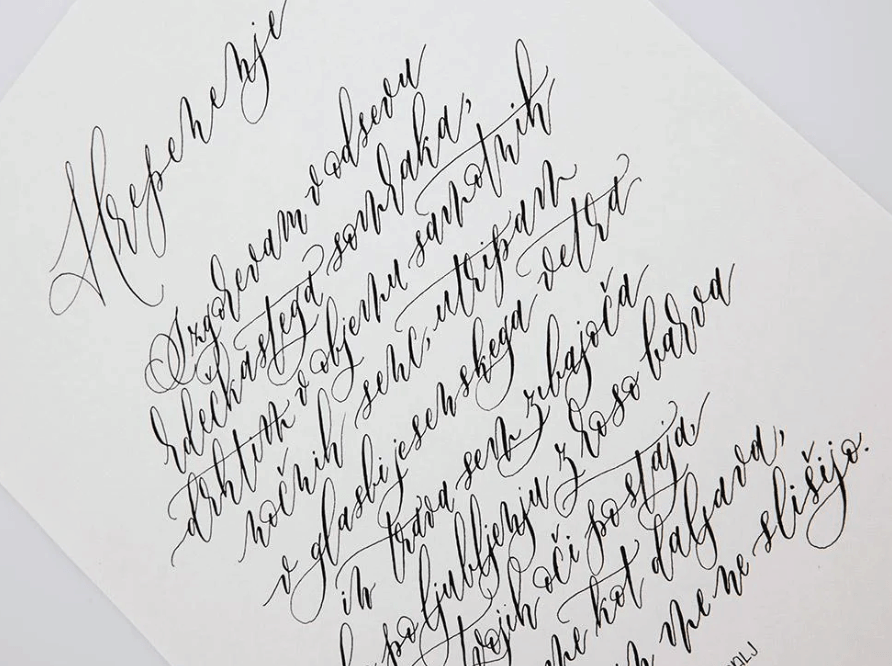 Hrepenenje
Izgorevam v odsevu
rdečkastega somraka,
drhtim v objemu samotnih
nočnih senc, utripam
v glasbi jesenskega vetra
in trava sem z bajoča
poljubljenju z roso barva
tvojih oči postaja,
me kot daljava,
me ne slišijo.